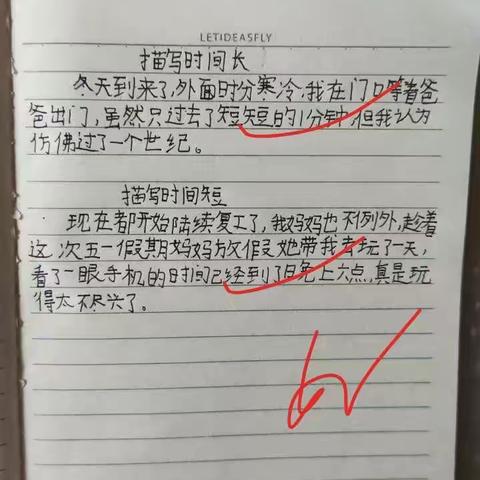 LETIDEASFLY
描写时间长
冬天到来了,外面时分寒冷,我在门口等着爸
爸出门,虽然只过去了短短的1分钟,但我认为
仿佛过了一个世纪。
描写时间短
现在都开始陆续复工了,我妈妈也不例外,趁着
这次五一假期妈妈放假她带我去玩了一天,
看了一眼手机的时间已经到了晚上六点,真是玩
得太尽兴了。